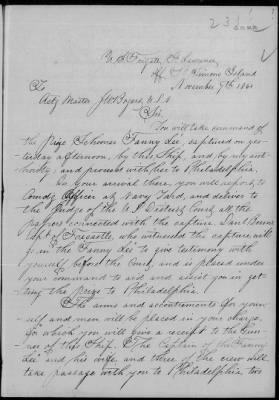 U.S. Frigate, St Lawrence,
off St Simons Island
November 7th 1861
To
Actg Master J.W. Rogers, U.S.N.
Sir,
You will take command of
the Prize Schooner "Fanny Lee", captured on yes-
terday afternoon, by this Ship, and by my aut-
hority, and proceed with her to Philadelphia.
On your arrival there, you will report to
Comdg Officer at Navy Yard, and deliver to
the Judge of the U.S. District Court, all the
papers connected with the capture.
Capt. of who witnessed the capture, will
go in the "Fanny Lee" to give testimony with
yourself before the Court, and is placed under
your command to aid and assist you in get-
ting the prize to Philadelphia.
The arms and accoutrements for your-
self and men will be placed in your charge,
for which you will give a receipt to the Gun-
ner of this Ship. The Captain of the "Fanny
Lee" and his wife, and three of the crew will
take passage with you to Philadelphia, two